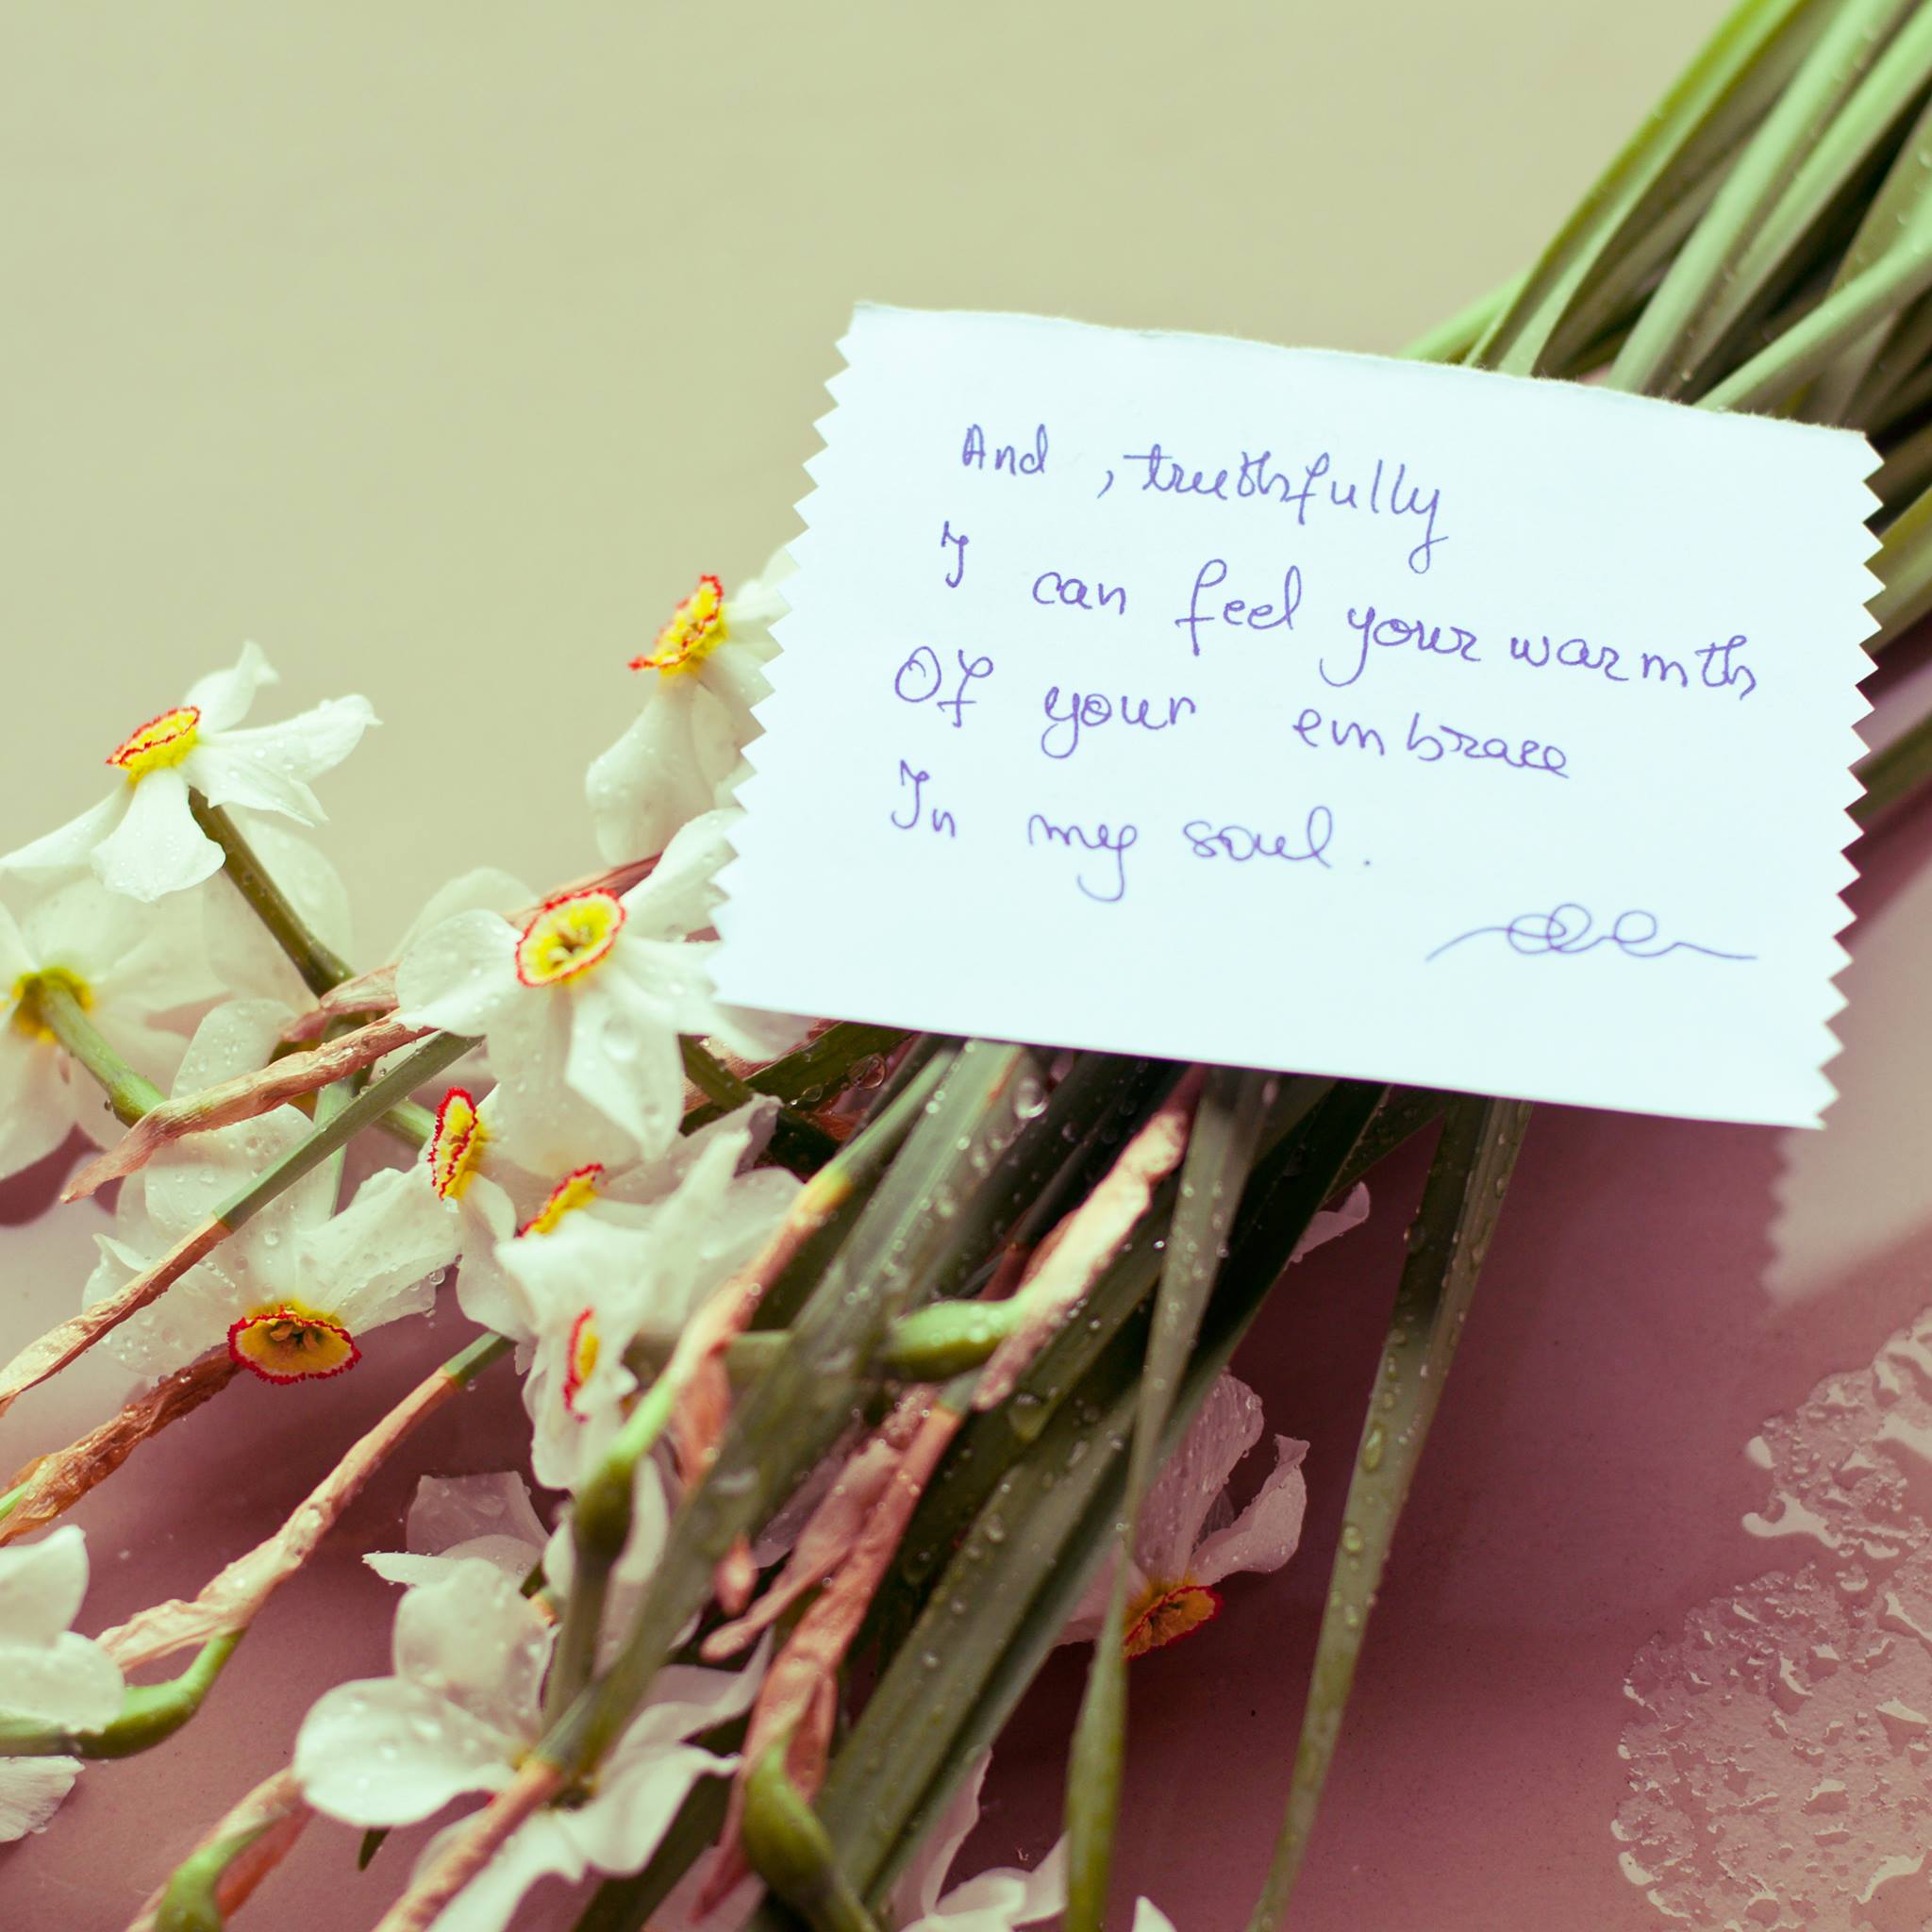 And , truthfully
I can feel your warmth
Of your embrace
In my soul.